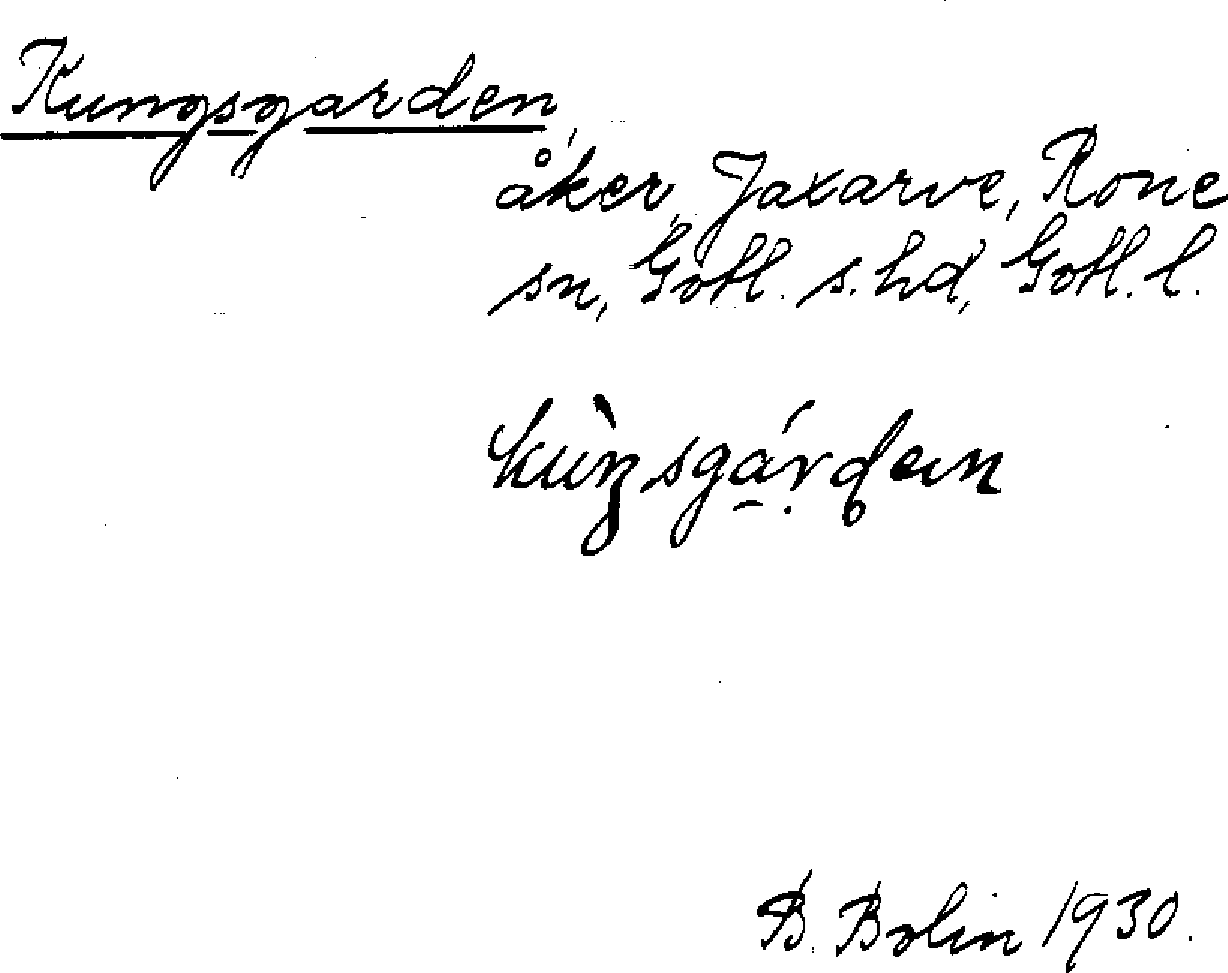 Kungsgarden,
åker, Jaxarve, Rone
sn, Gotl. s. hd, Gotl. l.
B. Bolin 1930.